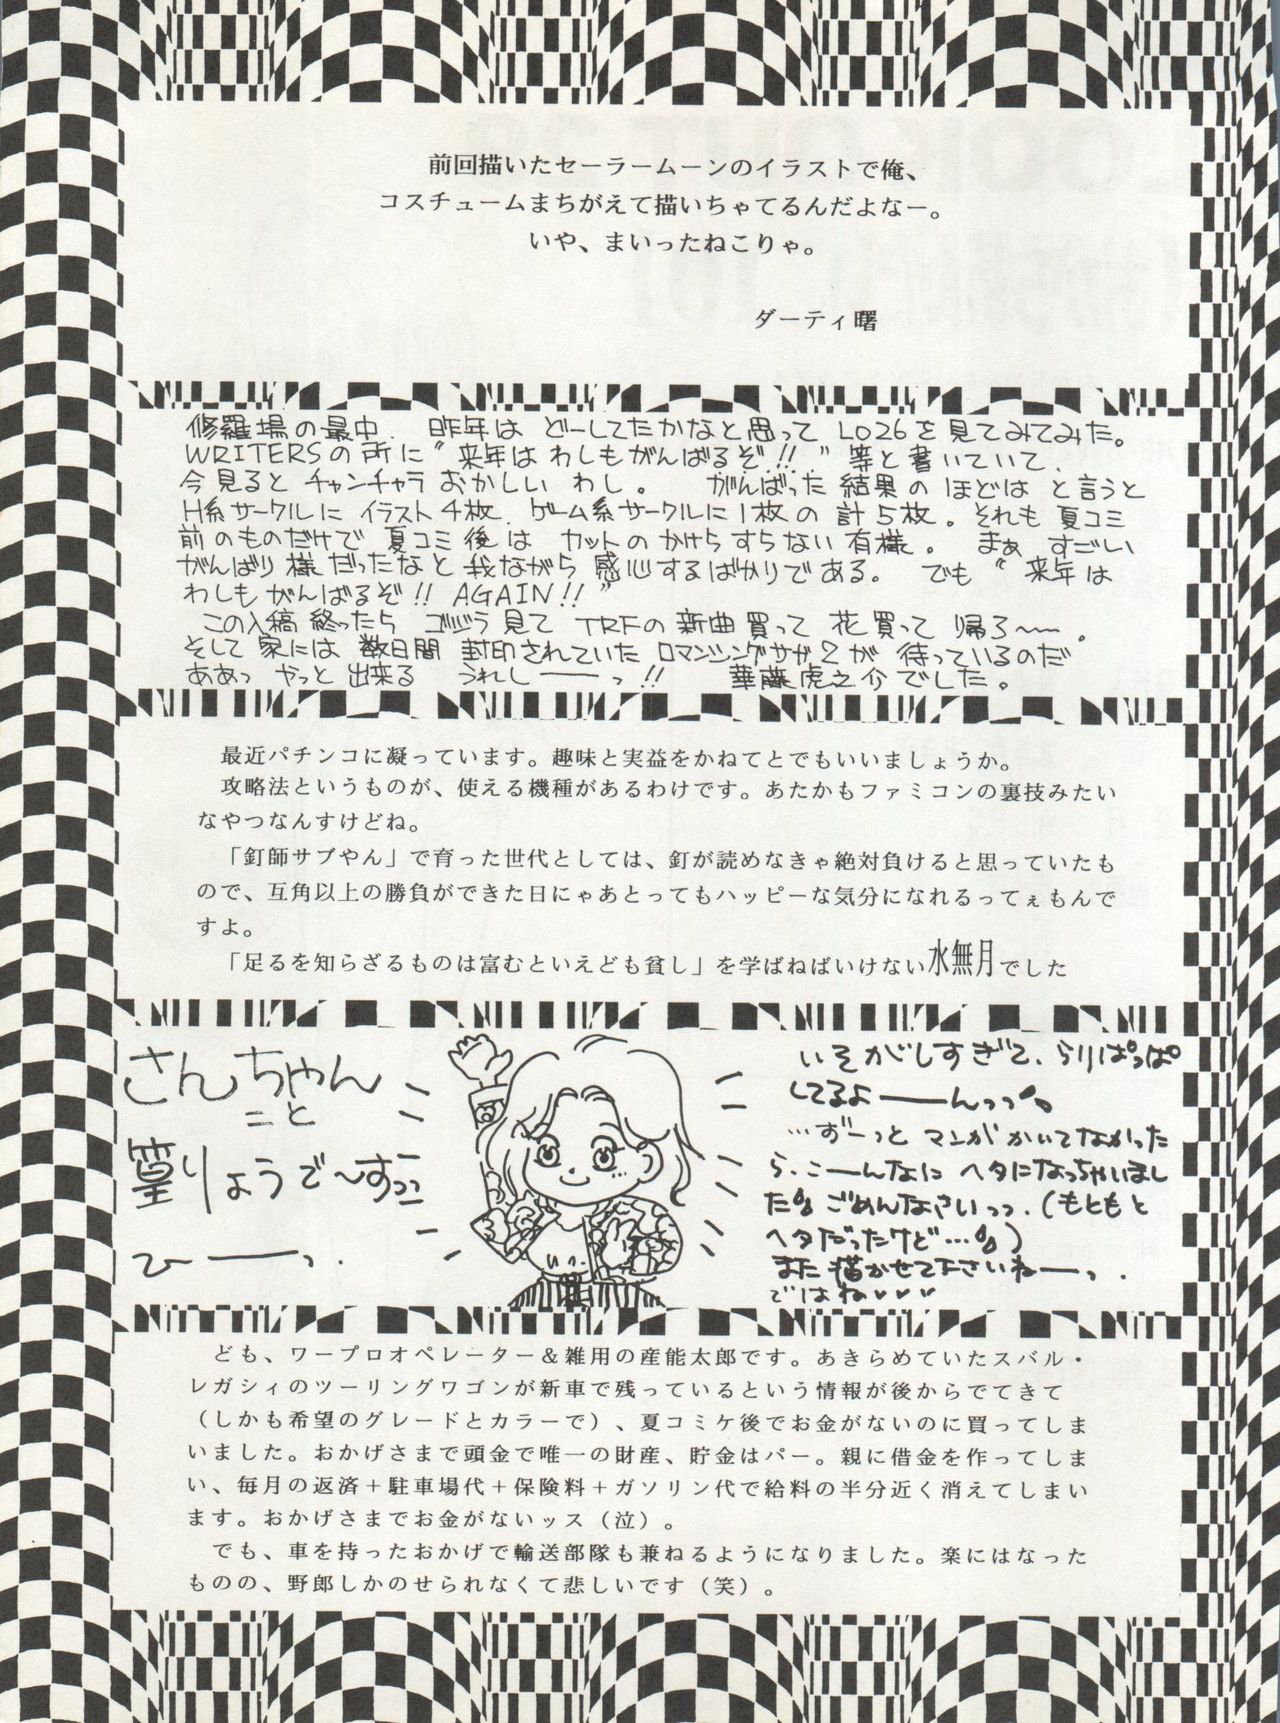 前回描いたセーラームーンのイラストで俺、
コスチュームまちがえて描いちゃてるんだよなー。
いや、まいったねこりゃ。
ダーティ曙
修羅場の最中、昨年は どーしてたかなと思って LO26を見てみてみた。
WRITERSの所に“来年は わしもがんばるぞ!!”等と書いていて、
今見ると チャンチャラ おかしい わし。 がんばった 結果の ほどは と言うと
H系サークルに イラスト4枚、ゲーム系サークルに1枚の 計5枚。それも 夏コミ
前のものだけで 夏コミ後は カットの かけらすらない 有様。 まぁ すごい
がんばり様だったなと 我ながら 感心するばかりである。 でも“来年は
わしもがんばるぞ!! AGAIN!!”
この入稿 終ったら ゴジラ見て TRFの 新曲買って 花買って 帰ろ〜〜。
そして 家には 数日間 封印されていた ロマンシングサガ2が 待っているのだ
ああっ やっと 出来る うれしーーっ!! 華藤虎之介でした。
最近パチンコに凝っています。趣味と実益をかねてとでもいいましょうか。
攻略法というものが、使える機種があるわけです。あたかもファミコンの裏技みたい
なやつなんすけどね。
「釘師サブやん」で育った世代としては、釘が読めなきゃ絶対負けると思っていたも
ので、互角以上の勝負ができた日にゃあとってもハッピーな気分になれるってぇもんで
すよ。
「足るを知らざるものは富むといえども貧し」を学ばねばいけない水無月でした
さんちゃん
こと
篁りょうで〜すっっ
ひーーっ.
いそがしすぎて、らりぱっぱ
してるよーーんっっ
…ずーっと マンガ かいてなかった
ら、こーんなに ヘタになっちゃいまし
た ごめんなさいっっ.(もともと
ヘタだったけど…)
また 描かせて下さいねーーっ.
ではね♥♥♥
ども、ワープロオペレーター＆雑用の産能太郎です。あきらめていたスバル・
レガシィのツーリングワゴンが新車で残っているという情報が後からでてきて
（しかも希望のグレードとカラーで）、夏コミケ後でお金がないのに買ってしま
いました。おかげさまで頭金で唯一の財産、貯金はパー。親に借金を作ってしま
い、毎月の返済＋駐車場代＋保険料＋ガソリン代で給料の半分近く消えてしまい
ます。おかげさまでお金がないッス（泣）。
でも、車を持ったおかげで輸送部隊も兼ねるようになりました。楽にはなった
ものの、野郎しかのせられなくて悲しいです（笑）。